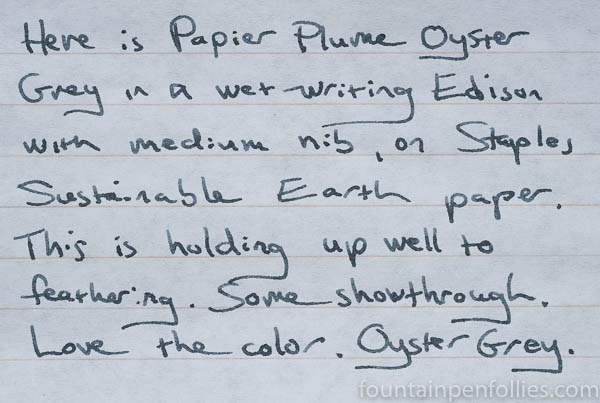 Here is Papier Plume Oyster
Grey in a wet-writing Edison
with medium nib, on Staples
Sustainable Earth paper.
This is holding up well to
feathering. Some showthrough.
Love the color. Oyster Grey.
fountainpenfollies.com